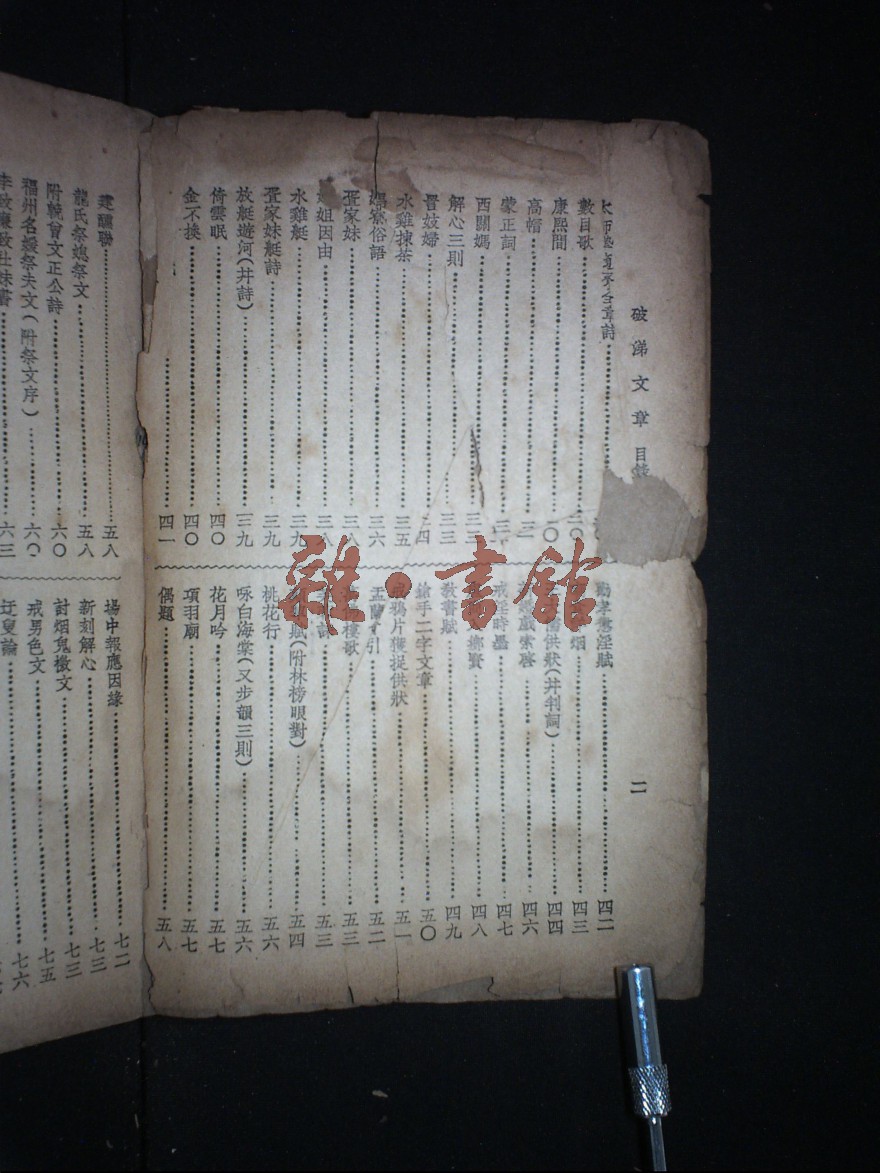 破涕文章 目錄
二
數目歌
康熙間
高帽
蒙正詞
西關媽
解心三則 三三
詈妓婦
水雞揀茶 三五
寮俗語 三六
疍家妹 三八
姐因由 三八
水雞艇 三九
疍家妹艇詩 三九
放艇遊河(幷詩) 三九
倚雲眠 四〇
金不換 四〇
四一
勸孝戒淫賦 四二
烟 四三
供狀(幷判詞) 四四
四六
戒淫時墨 四七
四八
教書賦 四九
槍手二字文章 五〇
戒鴉片獲捉供狀 五一
盂蘭引 五二
歌 五三
詩 五三
賦(附林榜眼對) 五四
桃花行 五六
咏白海棠(又步韻三則) 五六
花月吟 五七
項羽廟 五七
偶題 五八
建醮聯 五八
龍氏祭媳祭文 五八
附輓曾文正公詩 六〇
福州名媛祭夫文(附祭文序) 六〇
六三
揚中報應因緣 七二
新刻解心 七三
討烟鬼檄文 七三
戒男色文 七五
論 七六
雜·書館